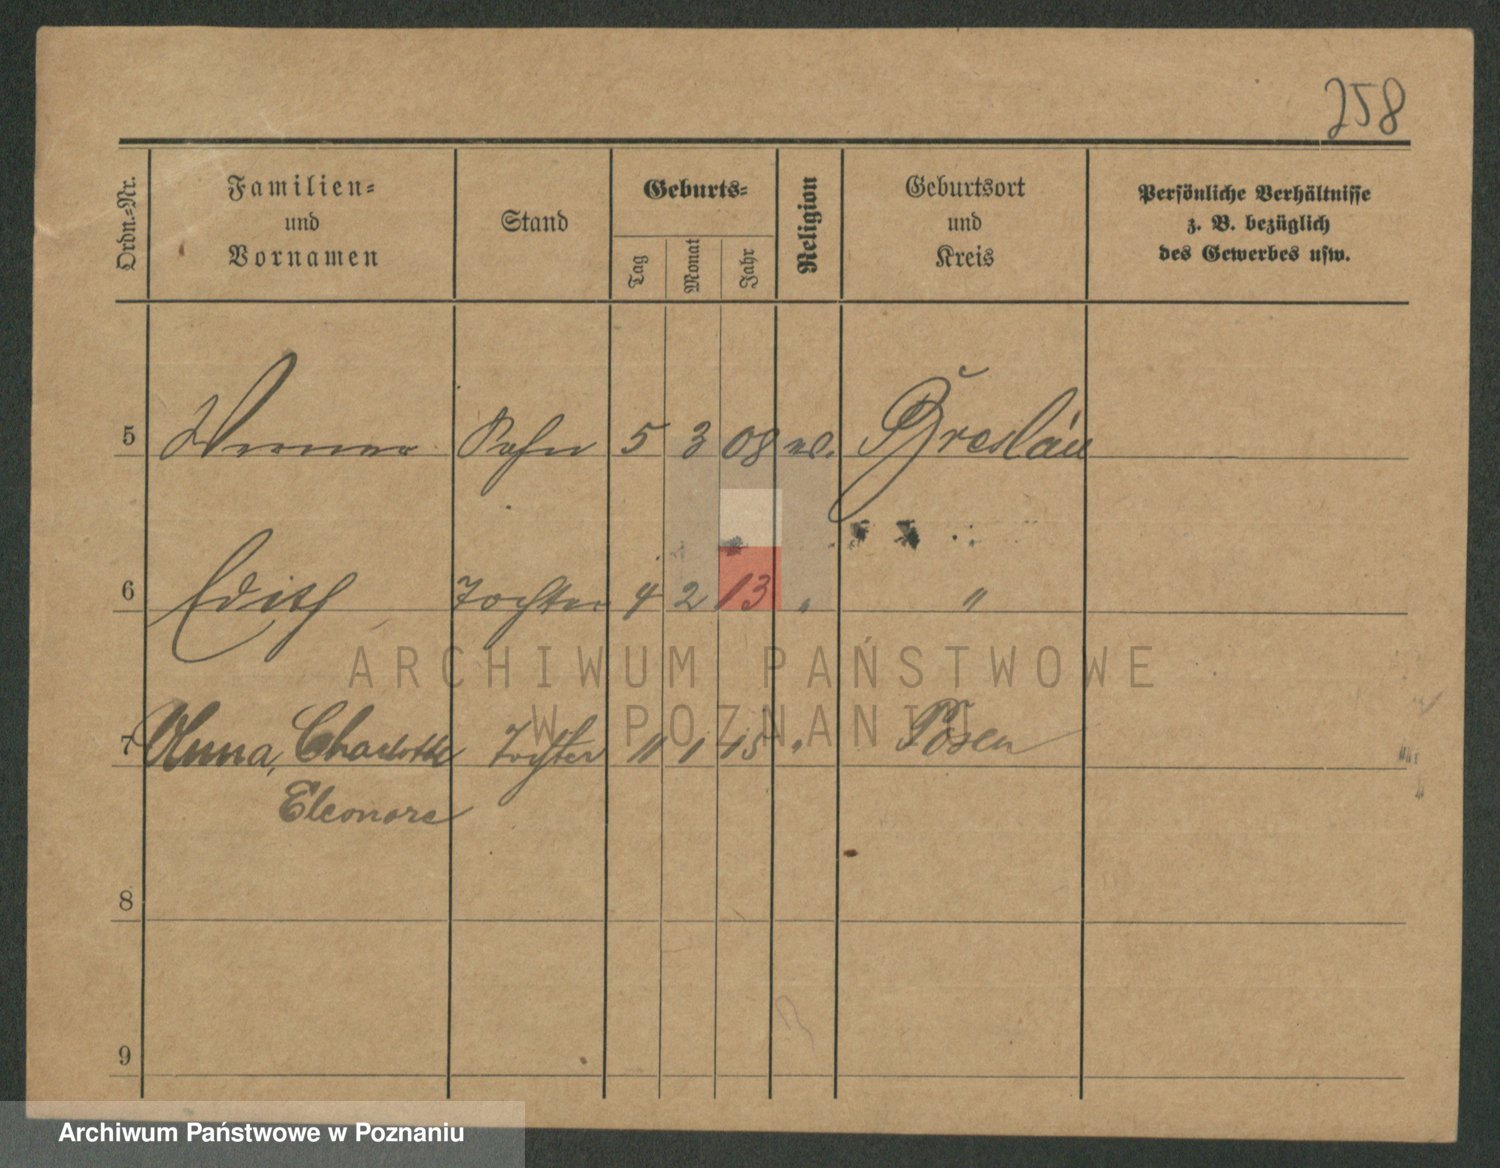 258
Ordn.-Nr.
Familien-
und
Vornamen
Stand
Geburts-
Tag
Monat
Jahr
Religion
Geburtsort
und
Kreis
Persönliche Verhältnisse
z. B. bezüglich
des Gewerbes usw.
5 Werner Sohn 5 3 08 ev. Breslau
6 Edith Tochter 4 2 13 " "
ARCHIWUM PAŃSTWOWE
W POZNANIU
7 Anna, Charlotte Tochter 11 1 15 " Posen
Eleonore
8
9
Archiwum Państwowe w Poznaniu